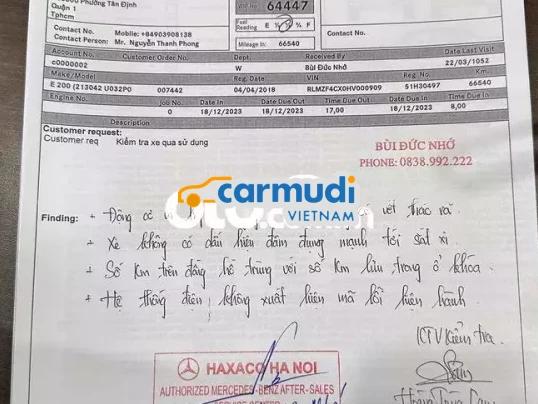 Phường Tân Định
Quận 1
Tphcm
WIP No 64447
Fuel Reading E ¼ ½ ¾ F
Contact No. Mobile: +84903908138
Contact Person: Mr. Nguyễn Thanh Phong
Contact No.
Mileage In: 66540
Account No. Customer Order No. Dept. Received By Date Last Visit
c0000002 W Bùi Đức Nhớ 22/03/1052
Make/Model Reg. Date VIN Reg. No. Km.
E 200 (213042 U032P0 007442 04/04/2018 RLMZF4CX0HV000909 51H30497 66540
Engine No. Job No. Date In Date Out Time Due Out Date In Time Due In
0 18/12/2023 18/12/2023 17,00 18/12/2023 8,00
Description
Customer request:
Customer req Kiểm tra xe qua sử dụng
BÙI ĐỨC NHỚ
PHONE: 0838.992.222
carmudi
VIETNAM
Finding: + Động cơ vết tháo rã
+ Xe không có dấu hiệu đâm đụng mạnh tới sắt xi
+ Số km trên đồng hồ trùng với số km lưu trong ổ khóa
+ Hệ thống điện, không xuất hiện mã lỗi hiện hành
KTV Kiểm tra
HAXACO HA NOI
AUTHORIZED MERCEDES-BENZ AFTER-SALES
SERVICE CENTER